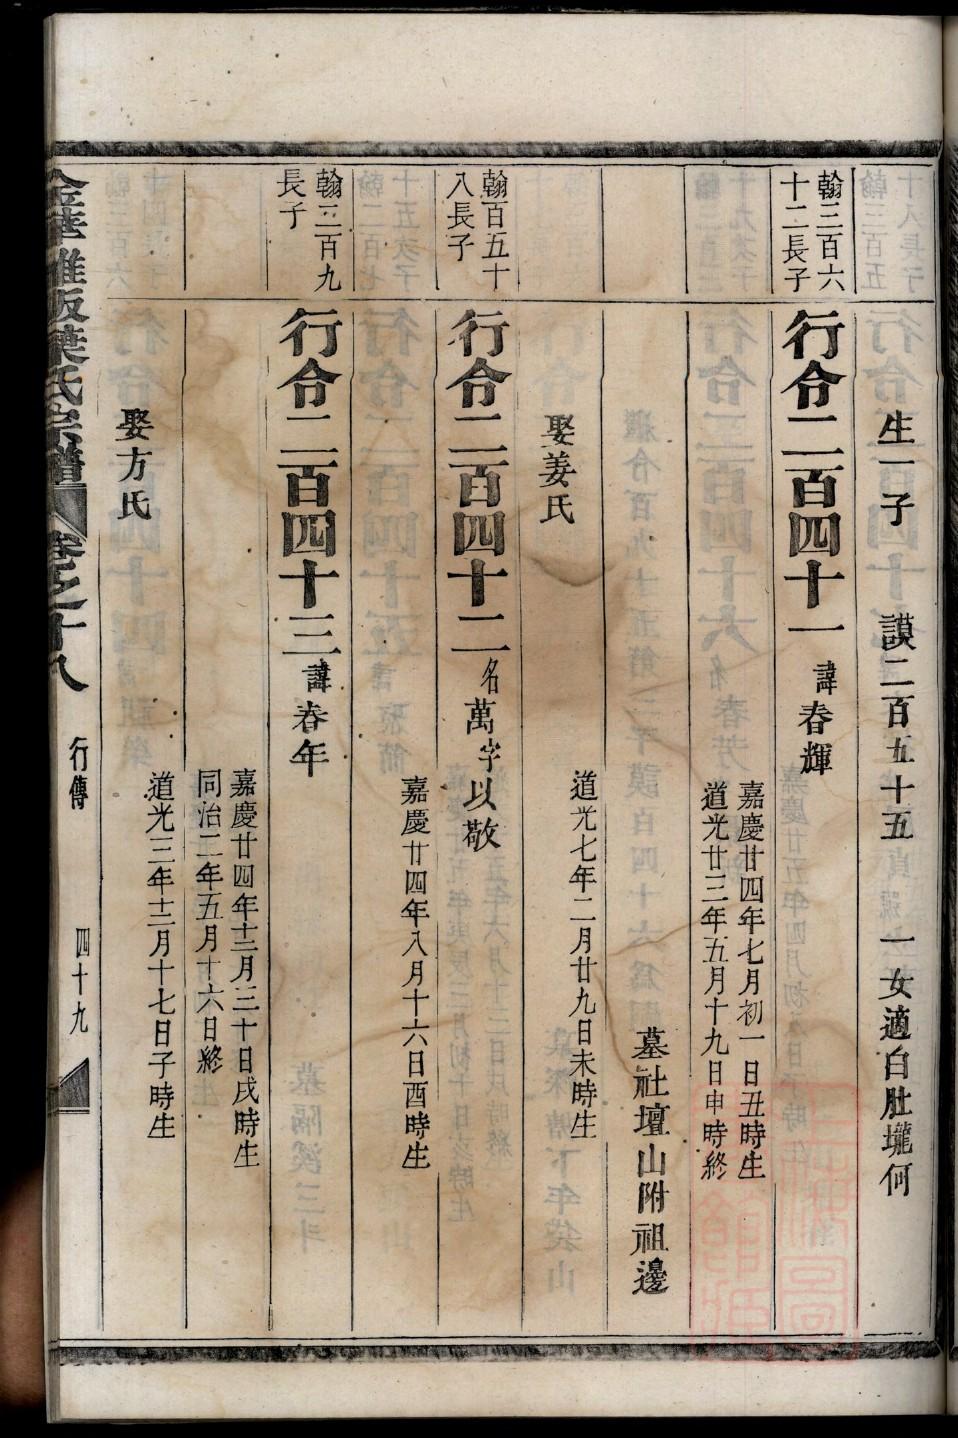 生一子 謨二百五十五 一女適白肚壠何
翰三百六
十二長子
行合二百四十一 諱春輝
嘉慶廿四年七月初一日丑時生
道光廿三年五月十九日申時終
墓社壇山附祖邊
娶姜氏
道光七年二月廿九日未時生
翰百五十
八長子
行合二百四十二 名萬字以敬
嘉慶廿四年八月十六日酉時生
翰三百九
長子
行合二百四十三 諱春年
嘉慶廿四年十二月三十日戌時生
同治二年五月十六日終
娶方氏
道光三年十二月十七日子時生
金華雅畈葉氏宗譜 卷之十八 行傳 四十九